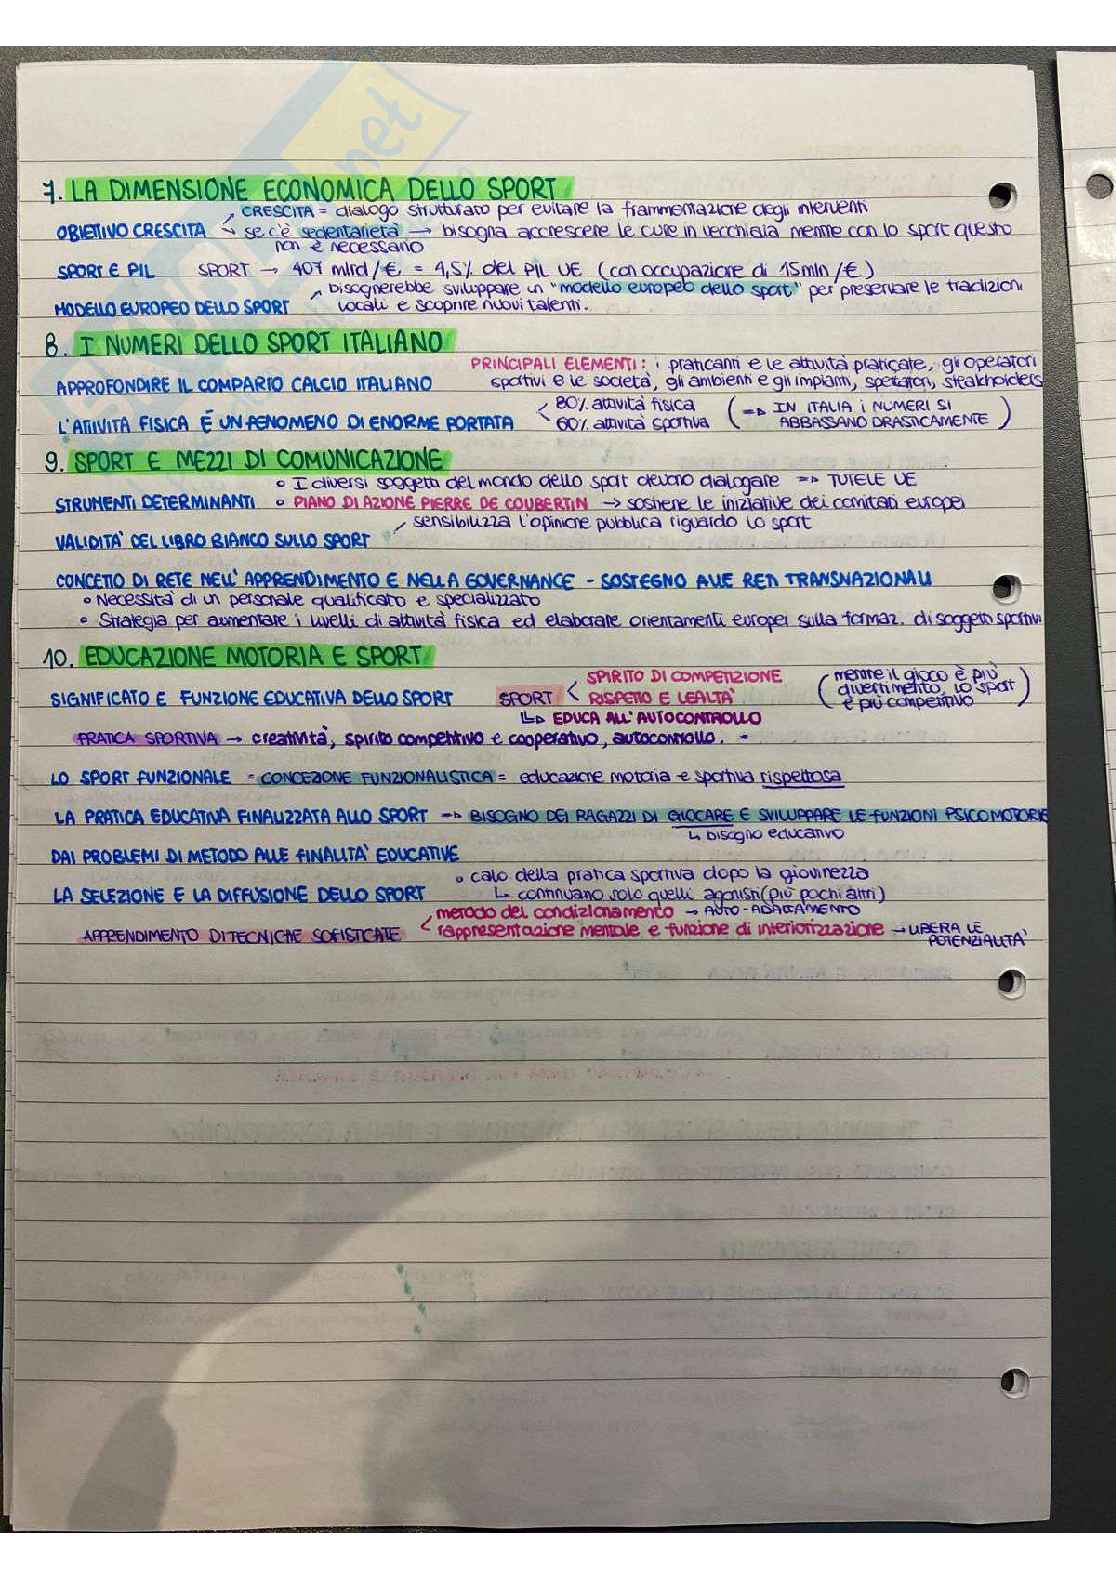 7. LA DIMENSIONE ECONOMICA DELLO SPORT
CRESCITA = dialogo strutturato per evitare la frammentazione degli interventi
OBIETTIVO CRESCITA → se c'è sedentarietà → bisogna accrescere le cure in vecchiaia mentre con lo sport questo
non è necessario
SPORT E PIL SPORT → 407 mlrd/€, = 4,5% del PIL UE (con occupazione di 15mln/€)
bisognerebbe sviluppare un "modello europeo dello sport" per preservare le tradizioni
MODELLO EUROPEO DELLO SPORT locali e scoprire nuovi talenti.
8. I NUMERI DELLO SPORT ITALIANO
PRINCIPALI ELEMENTI: i praticanti e le attività praticate, gli operatori
APPROFONDIRE IL COMPARTO CALCIO ITALIANO sportivi e le società, gli ambienti e gli impianti, spettatori, steakholders
80% attività fisica (=> IN ITALIA i NUMERI SI
L'ATTIVITÀ FISICA È UN FENOMENO DI ENORME PORTATA 60% attività sportiva ABBASSANO DRASTICAMENTE)
9. SPORT E MEZZI DI COMUNICAZIONE
• I diversi soggetti del mondo dello sport devono dialogare => TUTELE UE
STRUMENTI DETERMINANTI • PIANO DI AZIONE PIERRE DE COUBERTIN → sostiene le iniziative dei comitati europei
sensibilizza l'opinione pubblica riguardo lo sport
VALIDITA' DEL LIBRO BIANCO SULLO SPORT
CONCETTO DI RETE NELL'APPRENDIMENTO E NELLA GOVERNANCE - SOSTEGNO ALLE RETI TRANSNAZIONALI
• Necessità di un personale qualificato e specializzato
• Strategia per aumentare i livelli di attività fisica ed elaborare orientamenti europei sulla formaz. di soggetti sportivi
10. EDUCAZIONE MOTORIA E SPORT
SPIRITO DI COMPETIZIONE (mentre il gioco è più
SIGNIFICATO E FUNZIONE EDUCATIVA DELLO SPORT SPORT < RISPETTO E LEALTA' divertimento, lo sport
è più competitivo)
↳ EDUCA ALL'AUTOCONTROLLO
PRATICA SPORTIVA → creatività, spirito competitivo e cooperativo, autocontrollo.
LO SPORT FUNZIONALE - CONCEZIONE FUNZIONALISTICA = educazione motoria e sportiva rispettosa
LA PRATICA EDUCATIVA FINALIZZATA ALLO SPORT => BISOGNO DEI RAGAZZI DI GIOCARE E SVILUPPARE LE FUNZIONI PSICOMOTORIE
↳ bisogno educativo
DAI PROBLEMI DI METODO ALLE FINALITA' EDUCATIVE
• calo della pratica sportiva dopo la giovinezza
LA SELEZIONE E LA DIFFUSIONE DELLO SPORT ↳ continuano solo quelli agonisti (più pochi altri)
metodo del condizionamento → AUTO-ADATTAMENTO
APPRENDIMENTO DI TECNICHE SOFISTICATE < rappresentazione mentale e funzione di interiorizzazione → LIBERA LE
POTENZIALITA'